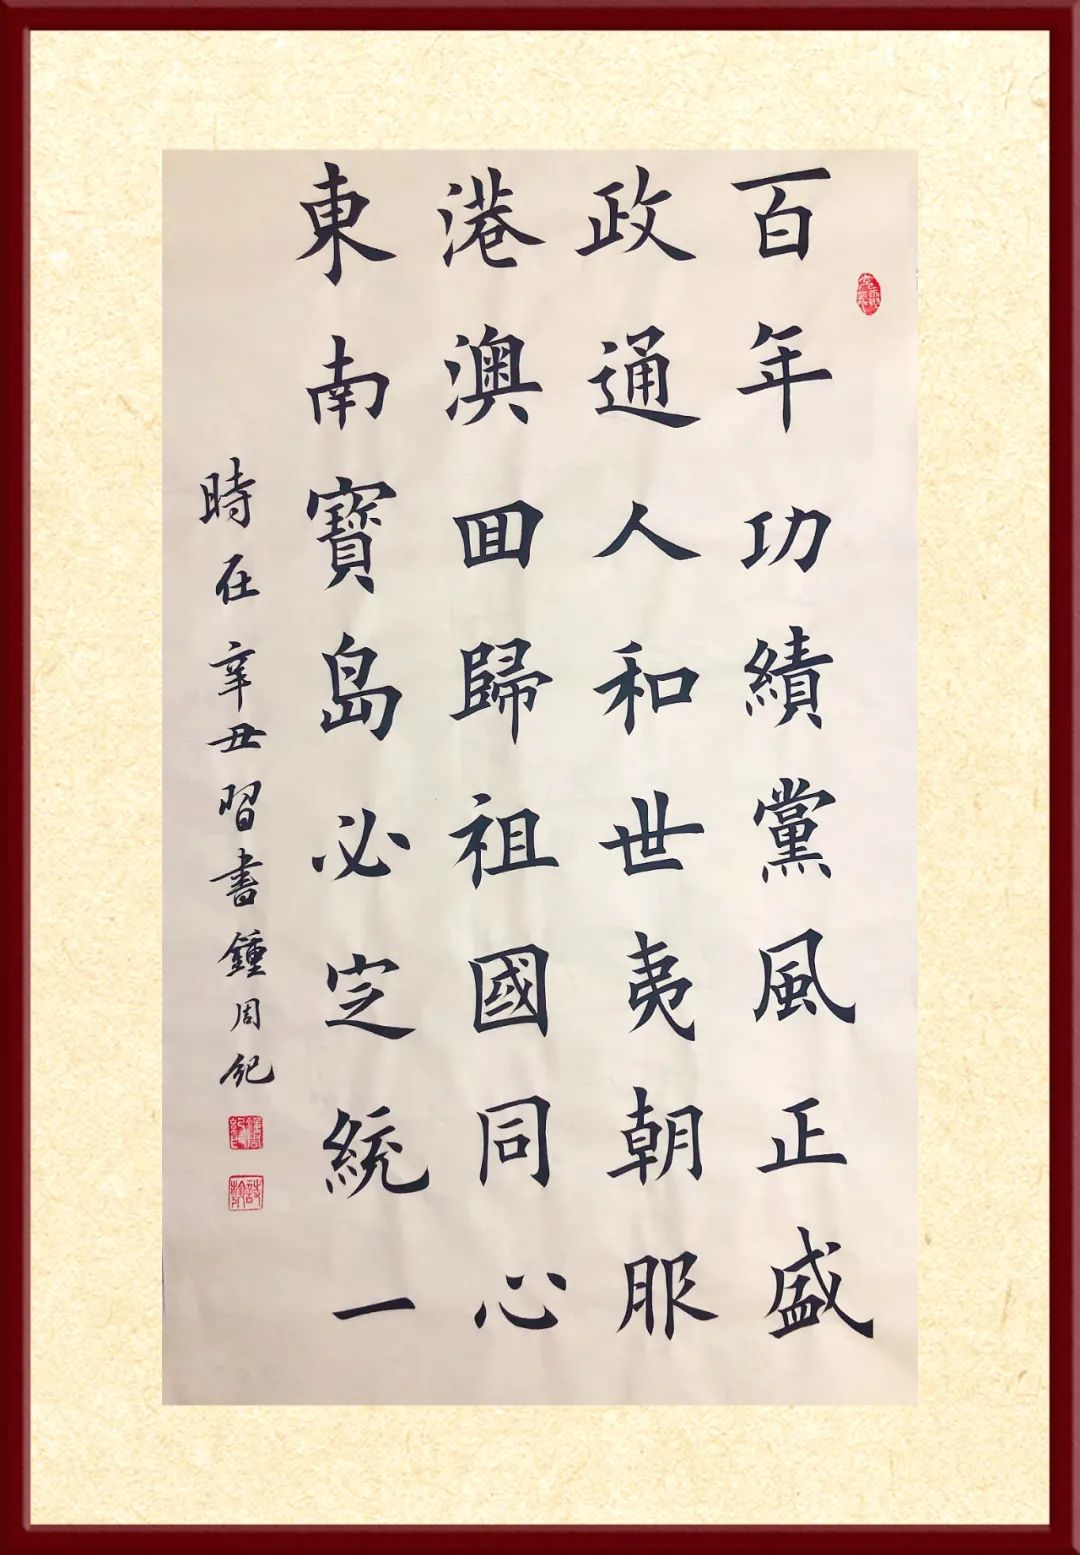 百年功績黨風正盛
政通人和世夷朝服
港澳囬歸祖國同心
東南寳島必定統一
時在辛丑習書鍾周紀